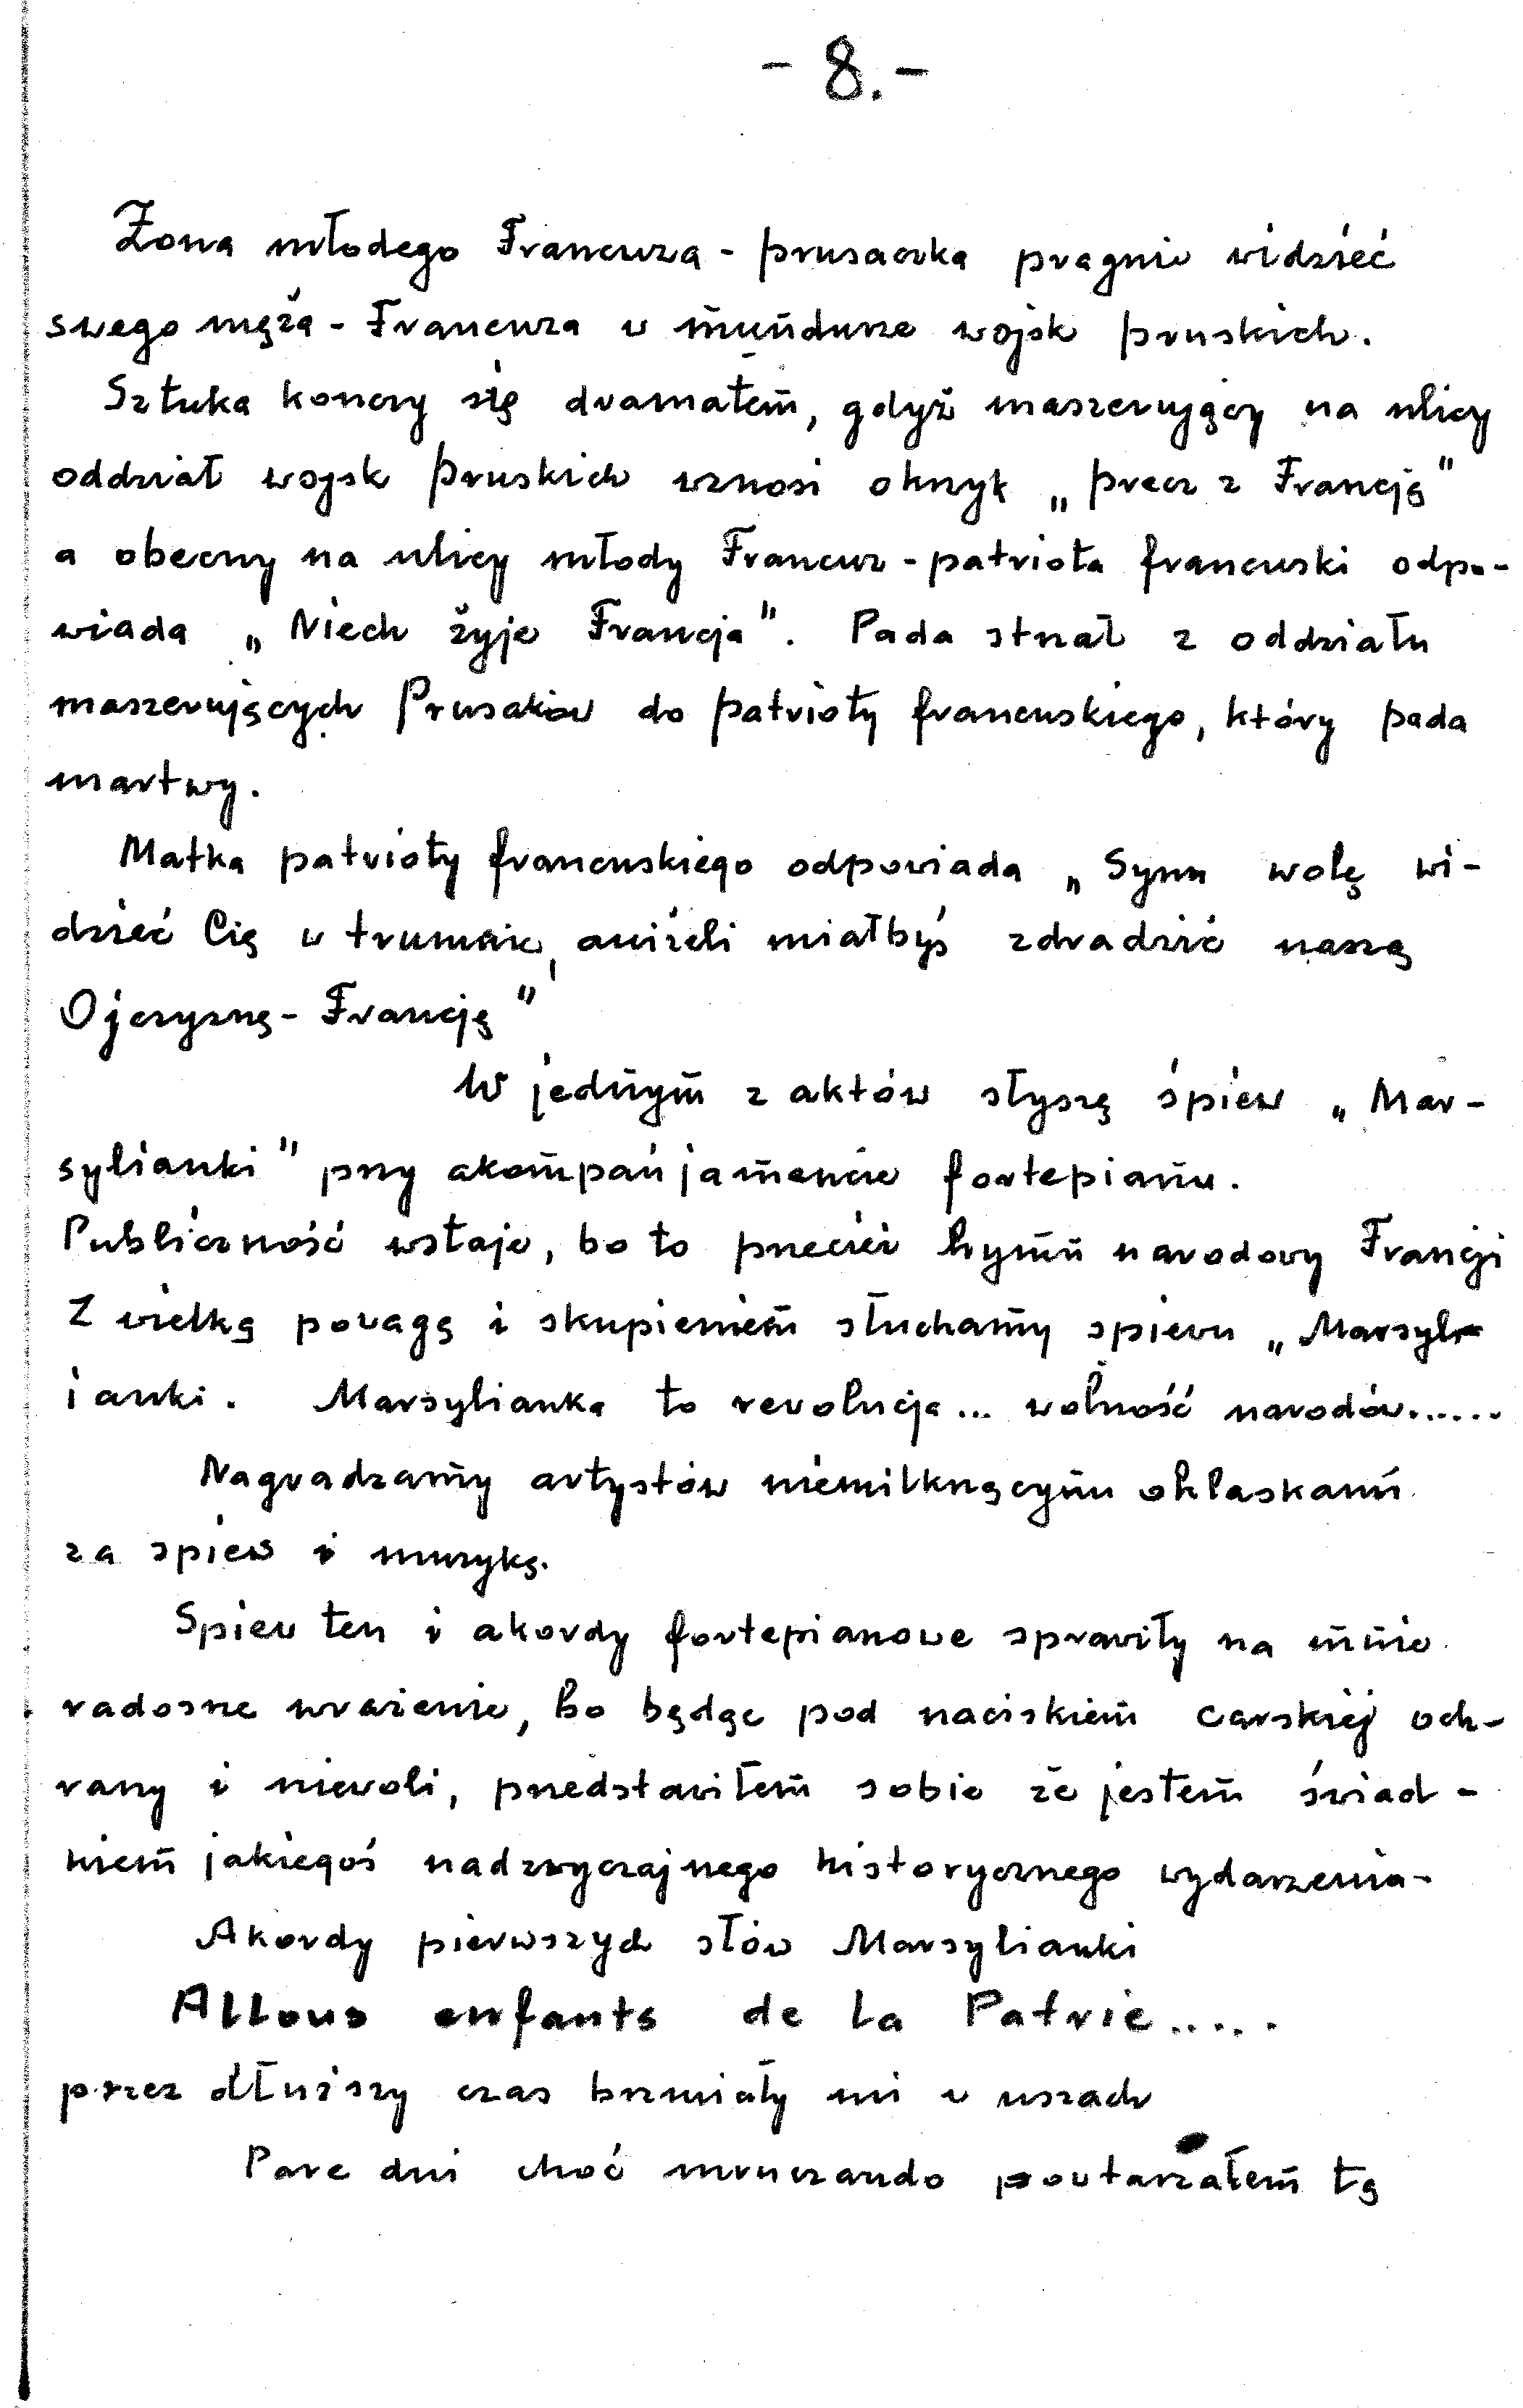 - 8. -
Żona młodego Francuza - prusaczka pragnie widzieć
swego męża - Francuza w mundurze wojsk pruskich.
Sztuka konczy się dramatem, gdyż maszerujący na ulicy
oddział wojsk pruskich wznosi okrzyk „precz z Francją"
a obecny na ulicy młody Francuz - patriota francuski odpo-
wiada „Niech żyje Francja". Pada strzał z oddziału
maszerujących Prusaków do patrioty francuskiego, który pada
martwy.
Matka patrioty francuskiego odpowiada „Synu wolę wi-
dzieć Cię w trumnie, aniżeli miałbyś zdradzić naszą
Ojczyznę - Francję"
W jednym z aktów słyszę śpiew „Mar-
sylianki" przy akompanjamencie fortepianu.
Publiczność wstaje, bo to przecież hymn narodowy Francji
Z wielką powagą i skupieniem słuchamy spiewu „Marsyl-
ianki. Marsylianka to rewolucja... wolność narodów......
Nagradzamy artystów niemilknącymi oklaskami
za spiew i muzykę.
Spiew ten i akordy fortepianowe sprawiły na mnie
radosne wrażenie, bo będąc pod naciskiem carskiej och-
rany i niewoli, przedstawiłem sobie że jestem świad-
kiem jakiegoś nadzwyczajnego historycznego wydarzenia-
Akordy pierwszych słów Marsylianki
Allons enfants de la Patrie.....
przez dłuższy czas brzmiały mi w uszach
Pare dni choć mrucząndo powtarzałem tę